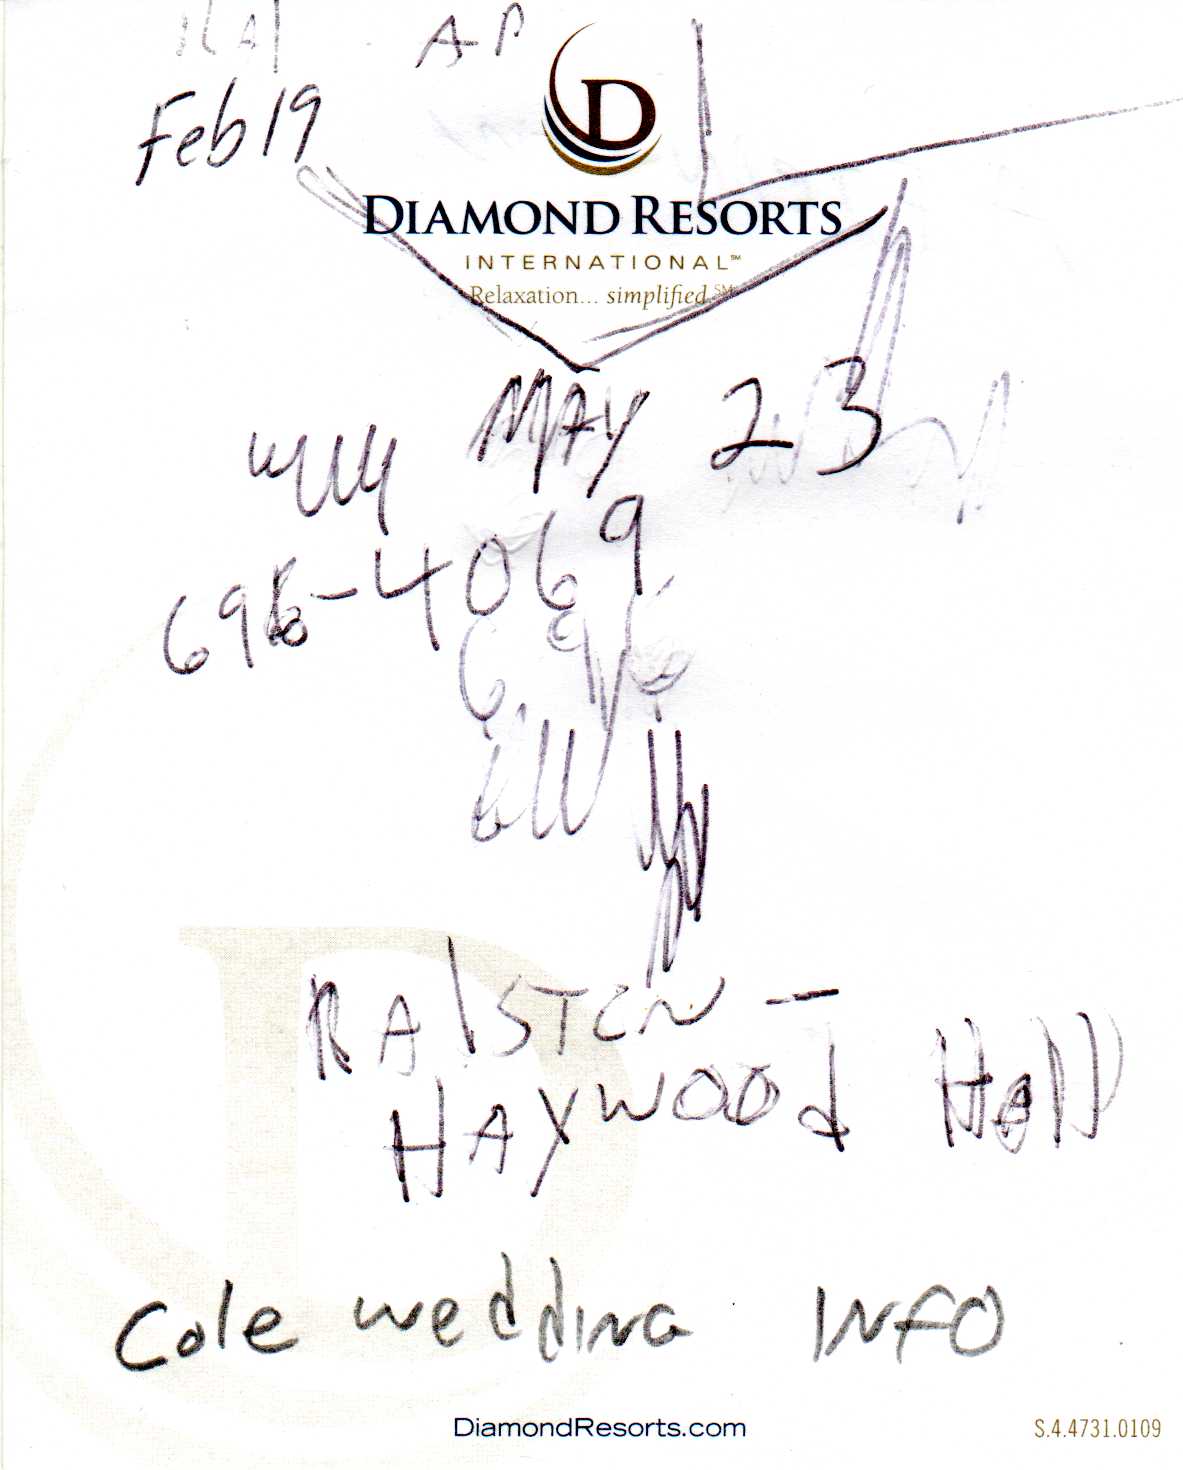 Feb 19
D
DIAMOND RESORTS
INTERNATIONAL℠
Relaxation... simplified.℠
MAY 23
696-4069
RAlSTON -
HAYWOOd HAll
Cole wedding INFO
DiamondResorts.com
S.4.4731.0109